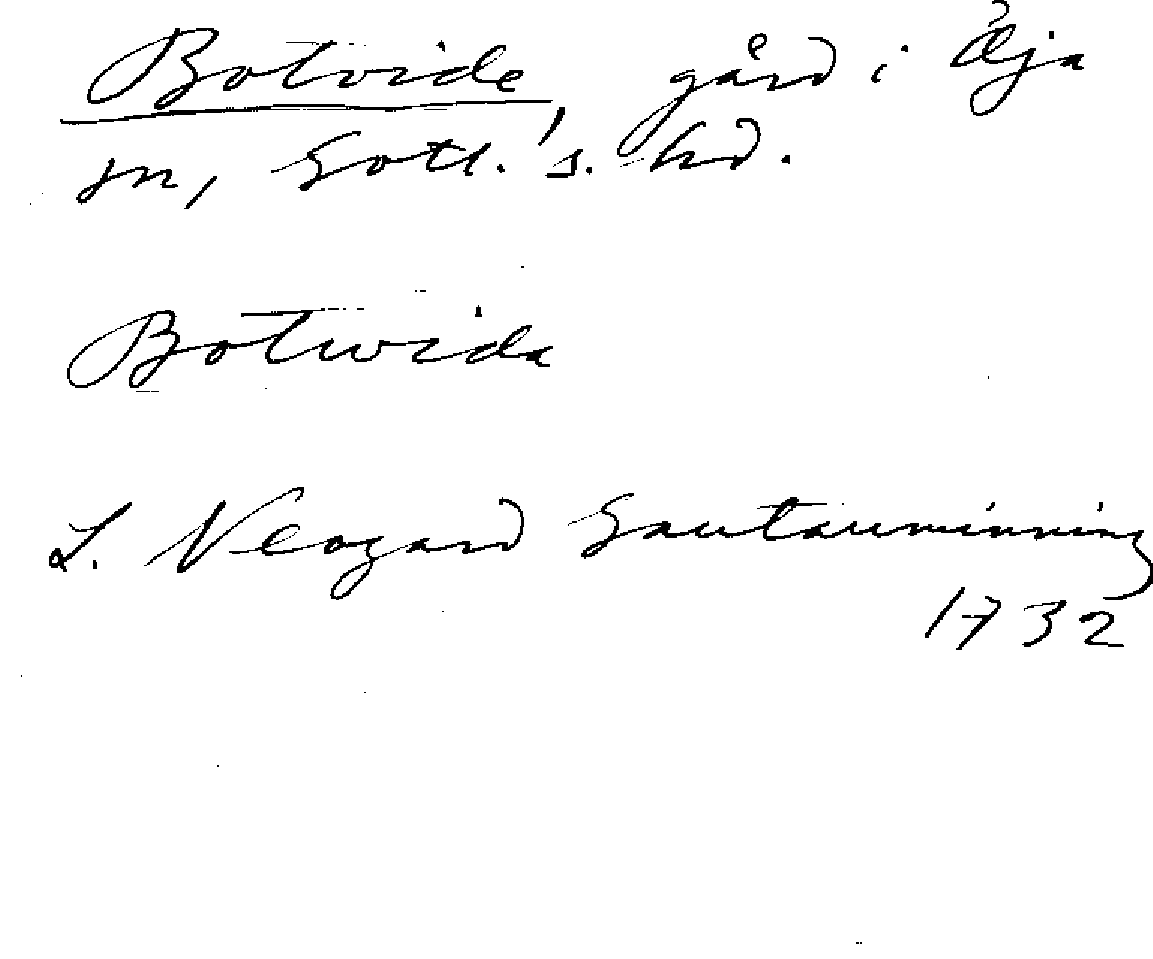 Botvide, gård i Öja
sn, Gotl. s. hd.
Botwida
L. Neogard Gautauminning
1732